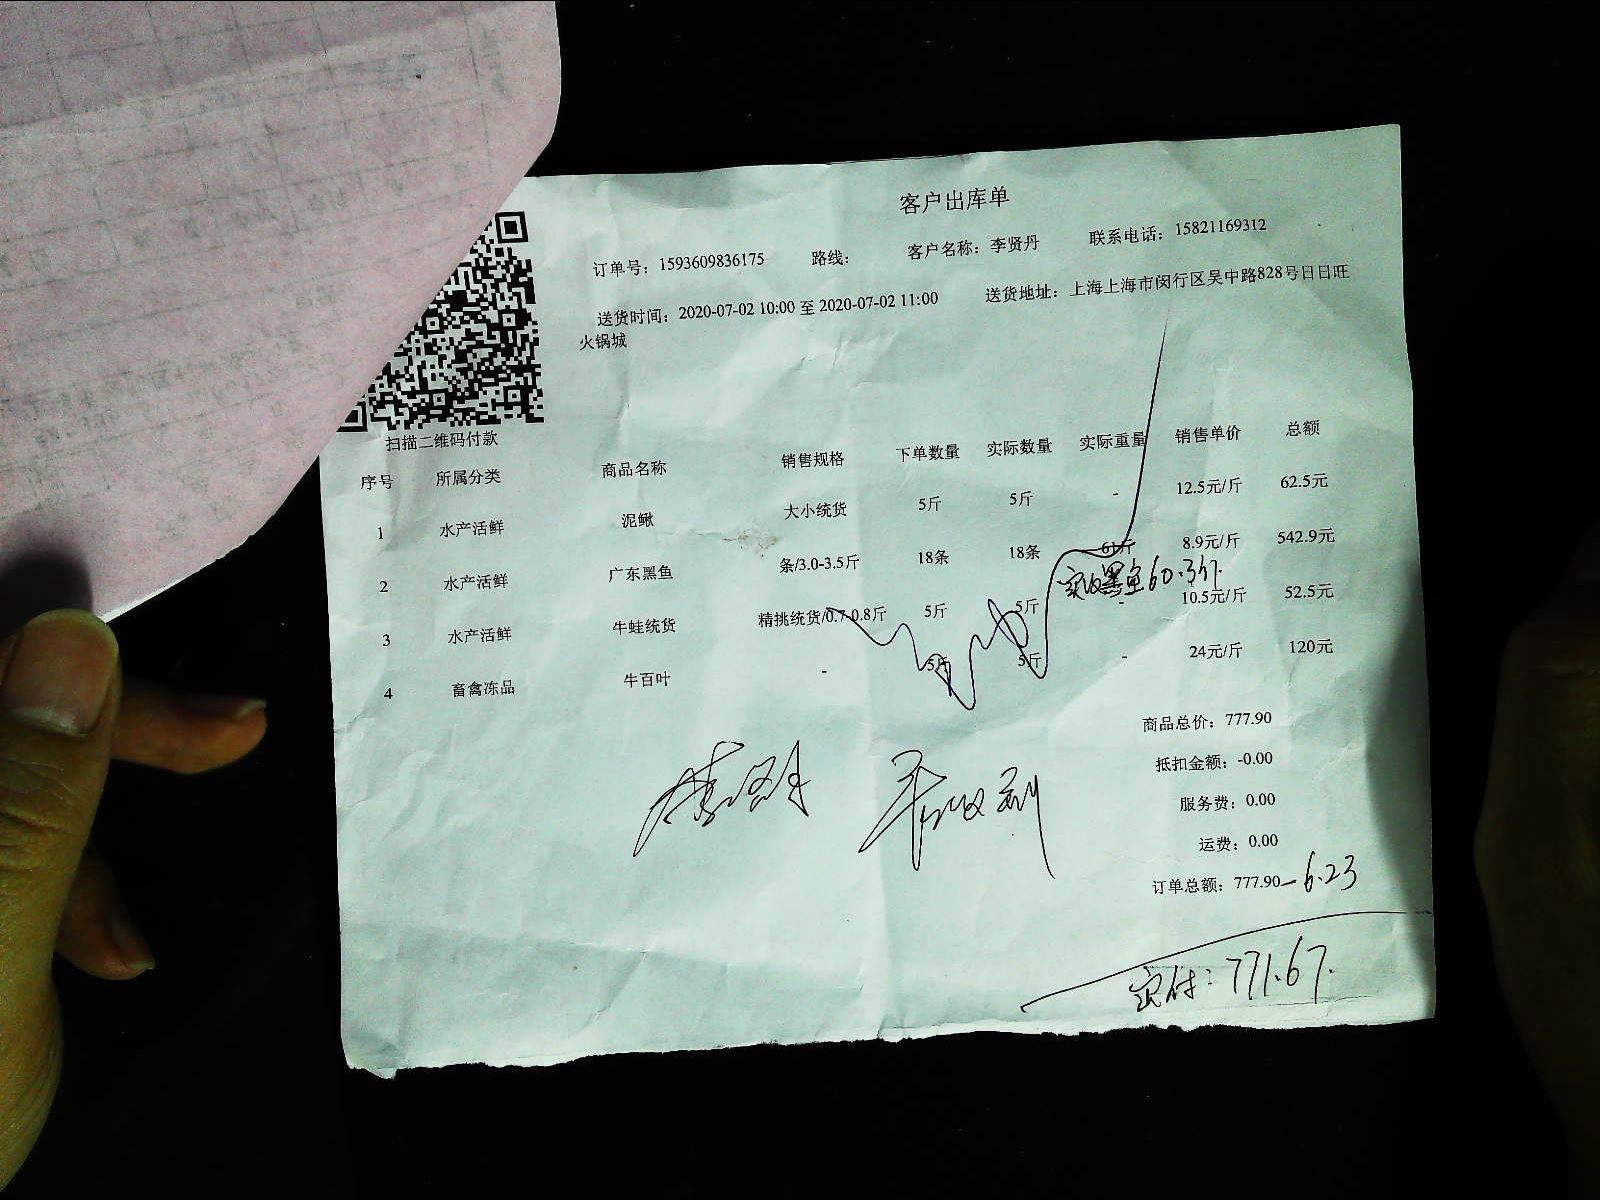 客户出库单
订单号：1593609836175 路线： 客户名称：李贤丹 联系电话：15821169312
送货时间：2020-07-02 10:00 至 2020-07-02 11:00 送货地址：上海上海市闵行区吴中路828号日日旺
火锅城
扫描二维码付款
序号 所属分类 商品名称 销售规格 下单数量 实际数量 实际重量 销售单价 总额
1 水产活鲜 泥鳅 大小统货 5斤 5斤 - 12.5元/斤 62.5元
2 水产活鲜 广东黑鱼 条/3.0-3.5斤 18条 18条 61斤 8.9元/斤 542.9元
实收黑鱼60.3斤.
3 水产活鲜 牛蛙统货 精挑统货/0.7-0.8斤 5斤 5斤 - 10.5元/斤 52.5元
4 畜禽冻品 牛百叶 - 5斤 5斤 - 24元/斤 120元
商品总价：777.90
抵扣金额：-0.00
服务费：0.00
运费：0.00
订单总额：777.90-6.23
实付：771.67.